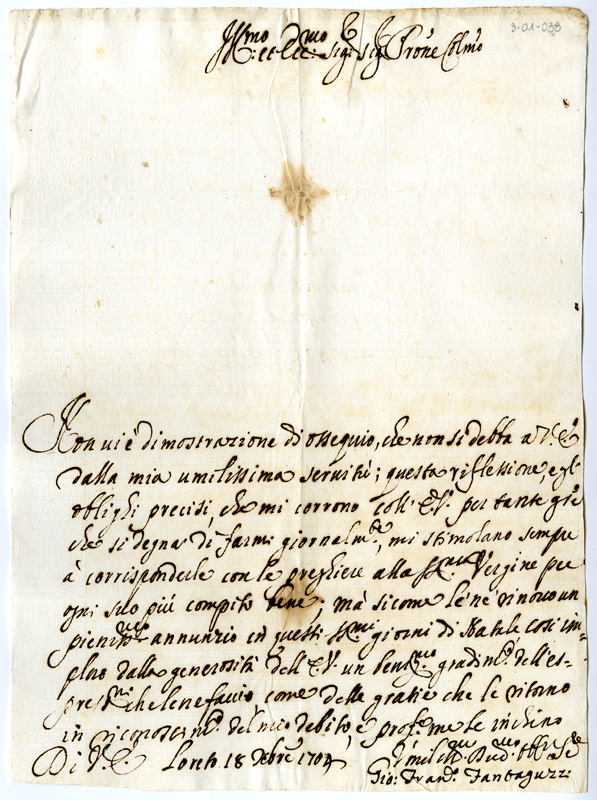 3-01-038
Ill.mo et Ecc.mo Sig.r Sig.r Prone Colmo
Non vi è dimostrazione di ossequio, che non si debba a V. E.
dalla mia umilissima servitù; questa riflessione, e gl'
oblighi precisi, che mi corrono coll' E. V. per tante grie
che si degna di farmi giornalm.te, mi stimolano sempre
à corrisponderle con le preghiere alla SS.ma Vergine per
ogni suo più compito bene; mà sicome le ne rinovo un
pieniss.mo annunzio in questi SS.mi giorni di Natale così im-
ploro dalla generosità dell' E. V. un benig.mo gradim.to dell' es-
press.ni che le ne faccio come delle gratie che le ritorno
in riconoscim.to del mio debito, e prof.te me le inchino
Di V. E. Loreto 18 Xbre 1704
Umiliss.mo Dev.mo Obl. Se.re
Gio: Fran.co Fantaguzzi